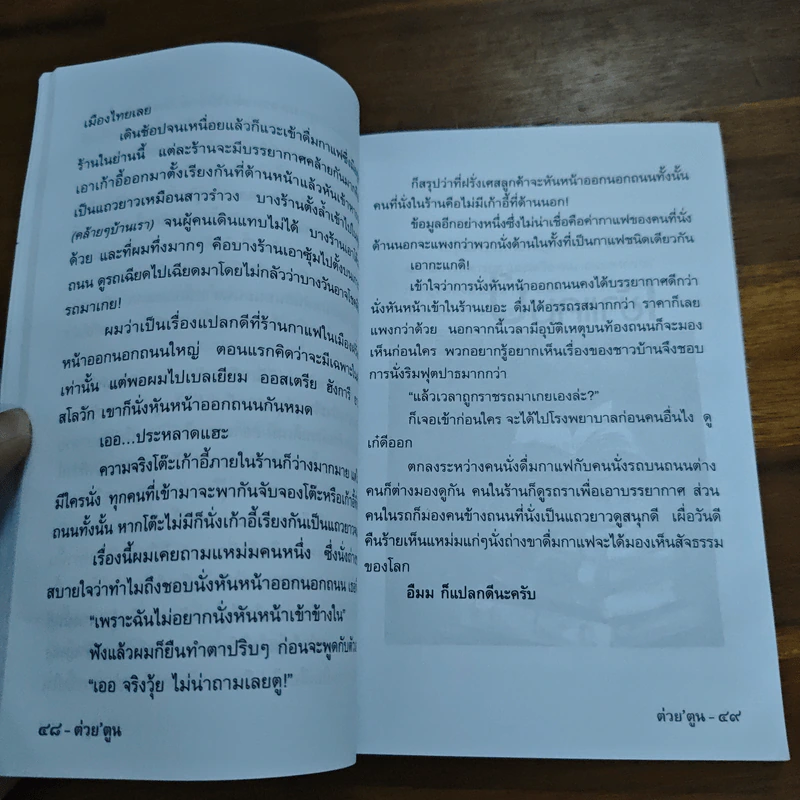 เมืองไทยเลย
เดินช้อปจนเหนื่อยแล้วก็แวะเข้าดื่มกาแฟซึ่ง
ร้านในย่านนี้ แต่ละร้านจะมีบรรยากาศคล้ายกัน
เอาเก้าอี้ออกมาตั้งเรียงกันที่ด้านหน้าแล้วหัน
เป็นแถวยาวเหมือนสาวรำวง บางร้านตั้งล้ำเข้าไป
(คล้ายๆบ้านเรา) จนผู้คนเดินแทบไม่ได้ บางร้าน
ด้วย และที่ผมทึ่งมากๆ คือบางร้านเอาซุ้มไปตั้งบน
ถนน ดูรถเฉียดไปเฉียดมาโดยไม่กลัวว่าบางวันอาจ
รถมาเกย!
ผมว่าเป็นเรื่องแปลกดีที่ร้านกาแฟในเมือง
หน้าออกนอกถนนใหญ่ ตอนแรกคิดว่าจะมีเฉพาะ
เท่านั้น แต่พอผมไปเบลเยียม ออสเตรีย ฮังการี
สโลวัก เขาก็นั่งหันหน้าออกถนนกันหมด
เออ...ประหลาดแฮะ
ความจริงโต๊ะเก้าอี้ภายในร้านก็ว่างมากมาย
มีใครนั่ง ทุกคนที่เข้ามาจะพากันจับจองโต๊ะหรือ
ถนนทั้งนั้น หากโต๊ะไม่มีก็นั่งเก้าอี้เรียงกันเป็นแถวยาว
เรื่องนี้ผมเคยถามแหม่มคนหนึ่ง ซึ่งนั่ง
สบายใจว่าทำไมถึงชอบนั่งหันหน้าออกนอกถนน
“เพราะฉันไม่อยากนั่งหันหน้าเข้าข้างใน”
ฟังแล้วผมก็ยืนทำตาปริบๆ ก่อนจะพูดกับ
“เออ จริงวุ้ย ไม่น่าถามเลยตู!”
๔๘ - ต่วย'ตูน
ก็สรุปว่าที่ฝรั่งเศสลูกค้าจะหันหน้าออกนอกถนนทั้งนั้น
คนที่นั่งในร้านคือไม่มีเก้าอี้ที่ด้านนอก!
ข้อมูลอีกอย่างหนึ่งซึ่งไม่น่าเชื่อคือค่ากาแฟของคนที่นั่ง
ด้านนอกจะแพงกว่าพวกนั่งด้านในทั้งที่เป็นกาแฟชนิดเดียวกัน
เอากะแกดิ!
เข้าใจว่าการนั่งหันหน้าออกถนนคงได้บรรยากาศดีกว่า
นั่งหันหน้าเข้าในร้านเยอะ ดื่มได้อรรถรสมากกว่า ราคาก็เลย
แพงกว่าด้วย นอกจากนี้เวลามีอุบัติเหตุบนท้องถนนก็จะมอง
เห็นก่อนใคร พวกอยากรู้อยากเห็นเรื่องของชาวบ้านจึงชอบ
การนั่งริมฟุตปาธมากกว่า
“แล้วเวลาถูกราชรถมาเกยเองล่ะ?”
ก็เจอเข้าก่อนใคร จะได้ไปโรงพยาบาลก่อนคนอื่นไง ดู
เก๋ดีออก
ตกลงระหว่างคนนั่งดื่มกาแฟกับคนนั่งรถบนถนนต่าง
คนก็ต่างมองดูกัน คนในร้านก็ดูรถราเพื่อเอาบรรยากาศ ส่วน
คนในรถก็มองคนข้างถนนที่นั่งเป็นแถวยาวดูสนุกดี เผื่อวันดี
คืนร้ายเห็นแหม่มแก่ๆนั่งถ่างขาดื่มกาแฟจะได้มองเห็นสัจธรรม
ของโลก
อืมม ก็แปลกดีนะครับ
ต่วย'ตูน - ๔๙